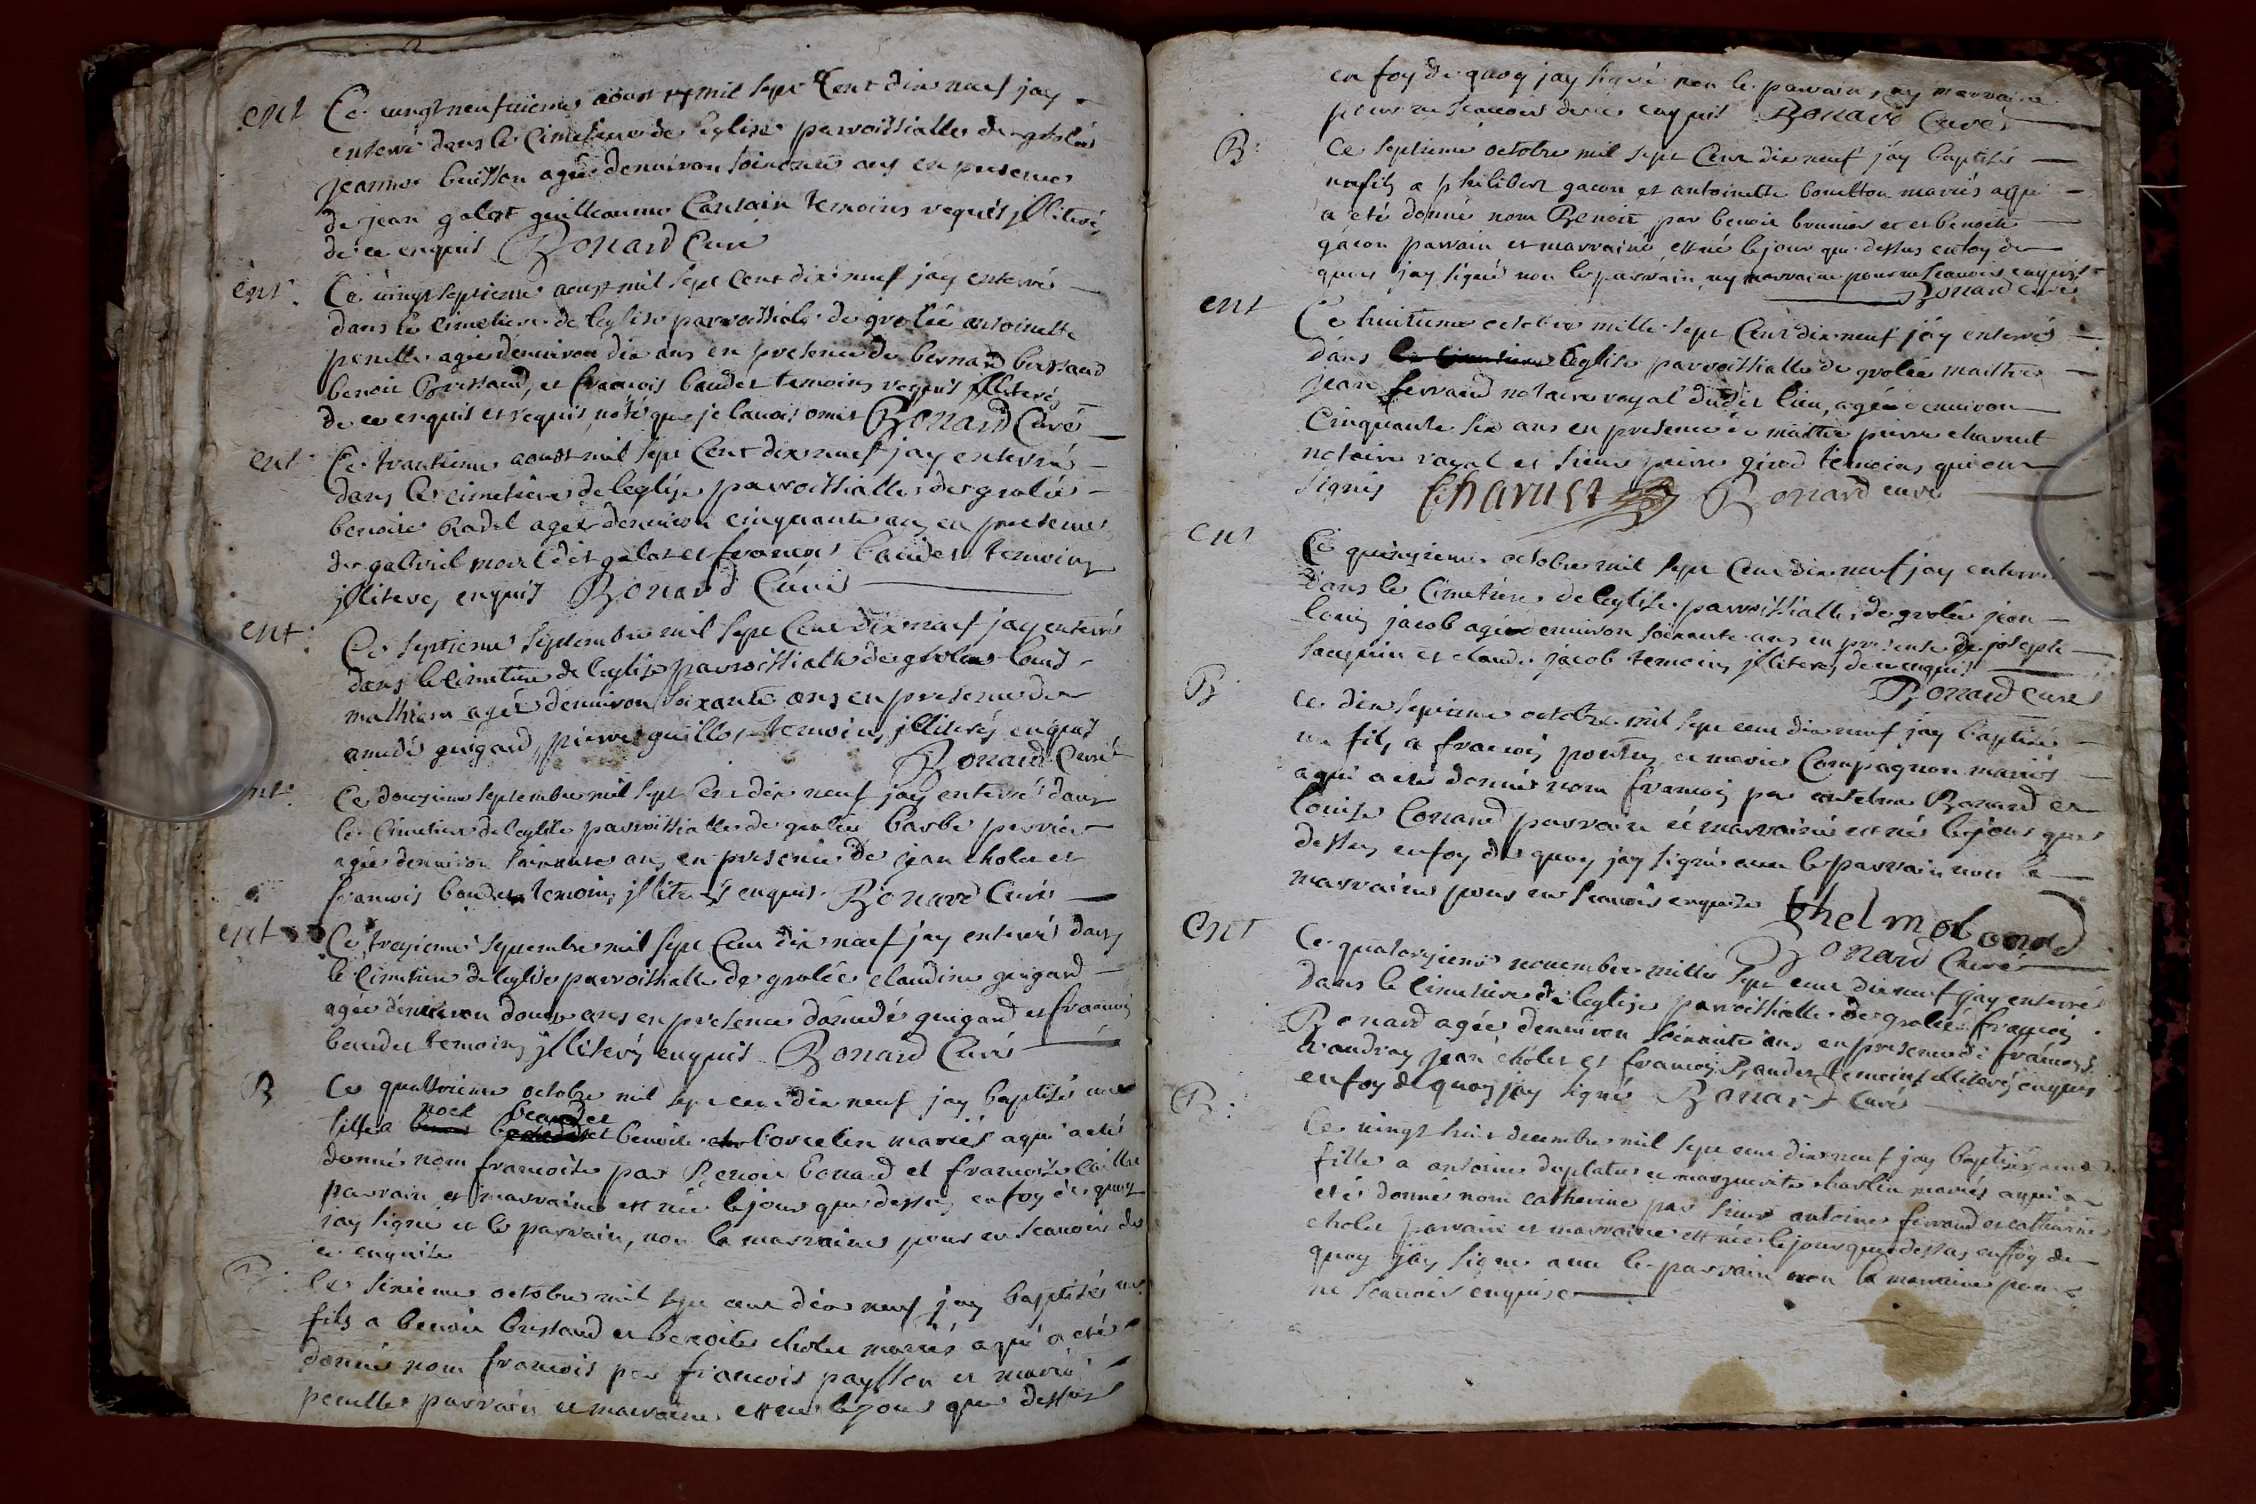 ent
Ce vingt neufuieme aoust mil sept Cent dix neuf jay
enterré dans le Cimetiere de leglise parroissialle de grolée
jeanne buisson agée denuiron soixante ans en presence
de jean galot guilleaume temoins requis jlliterés
de ce enquis Bonard Curé
ent.
Ce vingt septieme aoust mil sept Cent dix neuf jay enterré
dans le cimetiere de leglise parroissiale de grolée antoinette
penelle agée denuiron dix ans en presence de bernard brissaud
benoit Brissaud, et francois baudet temoins requis jlliterés
de ce enquis et requis, noté que je lauois omis Bonard Curé
ent
Ce trantieme aoust mil sept Cent dix neuf jay enterré
dans le cimetiere de leglise parroissialle de grolée
benoite Badel agée denuiron cinquante ans en presence
de gabriel morel dit galot et francois baudet temoins
jlliteres enquis Bonard Curé
ent.
Ce septieme septembre mil sept Cent dix neuf jay enterré
dans le Cimetiere de leglise parroissialle de grolée louis
mathieu agé denuiron soixante ans en presence de
amedé guigard, pierre guillot temoins jlliterés enquis
Bonard Curé
ent.
Ce douzieme septembre mil sept Cent dix neuf jay enterré dans
le Cimetiere de leglise parroissialle de grolée barbe perrier
agée denuiron soixante ans en presence de jean cholet et
francois baudet temoins jlliterés enquis. Bonard Curé
ent
Ce treizieme septembre mil sept Cent dix neuf jay enterré dans
le Cimetiere de leglise parroissialle de grolée claudine guigard
agée denuiron douze ans en presence damedé guigard et francois
baudet temoins jlliterés enquis Bonard Curé
B
Ce quattrieme octobre mil sept cent dix neuf jay baptisé une
noel baudet
fille a benoite borcelin mariés a qui a eté
donné nom francoise par Benoit Bonard et francoise
parrain et marraine est née le jour que dessus en foy de quoy
jay signé et le parrain, non la marraine pour ne scauoir de
ce enquise
B.
Ce sixieme octobre mil sept cent dix neuf jay baptisé un
fils a benoit brissaud et benoite cholet mariés a qui a eté
donné nom francois par francois paysson et marie
penelle parrain et marraine est né le jour que dessus
en foy de quoy jay signé non le parrain, ny marraine
pour ne scauoir de ce enquis Bonard Curé
B.
Ce septieme octobre mil sept Cent dix neuf jay baptisé
un fils a philibert gacon et antoinette bouisson mariés a qui
a eté donné nom Benoit par benoit brunier et et benoite
gacon parrain et marraine, est né le jour que dessus en foy de
quoy jay signé non le parrain, ny marraine pour ne scauoir enquis
Bonard curé
ent
Ce huitieme octobre mille sept Cent dix neuf jay enterré
dans leglise parroissialle de grolée maitre
jean ferrand notaire royal dudit lieu, agé denuiron
Cinquante six ans en presence de maitre pierre charuet
notaire royal et sieur pierre girod temoins qui ont
signés Charuet Bonard curé
ent
Ce quinzieme octobre mil sept Cent dix neuf jay enterré
dans le Cimetiere de leglise parroissialle de grolée jean
louis jacob agé denuiron soixante ans en presence de joseph
jacquin et claude jacob temoins jlliteres de ce enquis
Bonard curé
B
Ce dix septieme octobre mil sept cent dix neuf jay baptisé
un fils a francois et marie Compagnon mariés
a qui a eté donné nom francois par antelme Bonard et
louise Bonard parrain et marraine est né le jour que
dessus en foy de quoy jay signé auec le parrain non la
marraine pour ne scauoir enquise
Bonard Curé
ent
Ce quatorzieme nouembre mille sept cent dix neuf jay enterré
dans le Cimetiere de leglise parroissialle de grolée francois
Bonard agée denuiron soixante ans en presence de francois
jean cholet et francois Baudet temoins jlliterés enquis
en foy de quoy jay signé Bonard Curé
B.
Ce vingt huit decembre mil sept cent dix neuf jay baptisé une
fille a antoine duplatre et marguerite charlin mariés a qui a
eté donné nom catherine par sieur antoine ferrand et catherine
cholet parrain et marraine est née le jour que dessus en foy de
quoy jay signé auec le parrain non la marraine pour
ne scauoir enquise